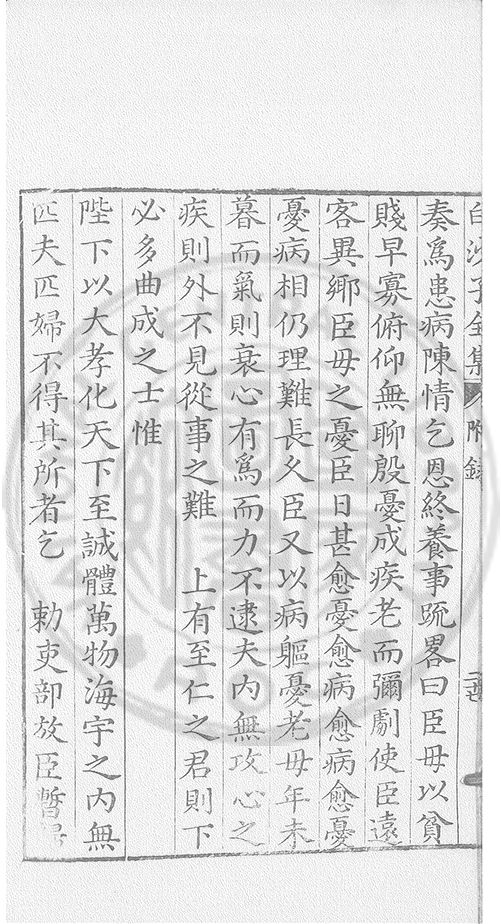 白沙子全集 附錄
奏爲患病陳情乞恩終養事疏畧曰臣毋以貧
賤早寡俯仰無聊殷憂成疾老而彌劇使臣遠
客異鄉臣毋之憂臣日甚愈憂愈病愈病愈憂
憂病相仍理難長久臣又以病軀憂老毋年未
暮而氣則衰心有爲而力不逮夫内無攻心之
疾則外不見從事之難 上有至仁之君則下
必多曲成之士惟
陛下以大孝化天下至誠體萬物海宇之内無
匹夫匹婦不得其所者乞 勅吏部放臣暫